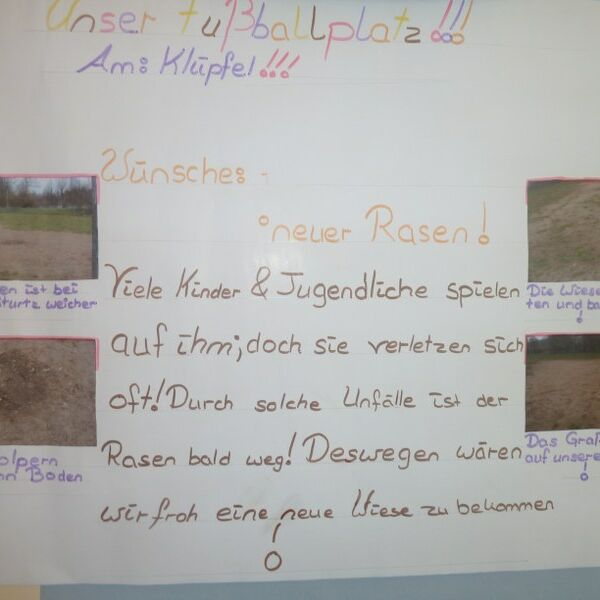 Unser Fußballplatz!!!
Am: Klüpfel!!!
Wünsche: -
neuer Rasen!
Viele Kinder & Jugendliche spielen
auf ihm; doch sie verletzen sich
oft! Durch solche Unfälle ist der
Rasen bald weg! Deswegen wären
wir froh eine neue Wiese zu bekommen!
en ist bei
turtz weicher
olpern
nn Boden
Die Wiese
ten und ba
!
Das Graß
auf unsere
!